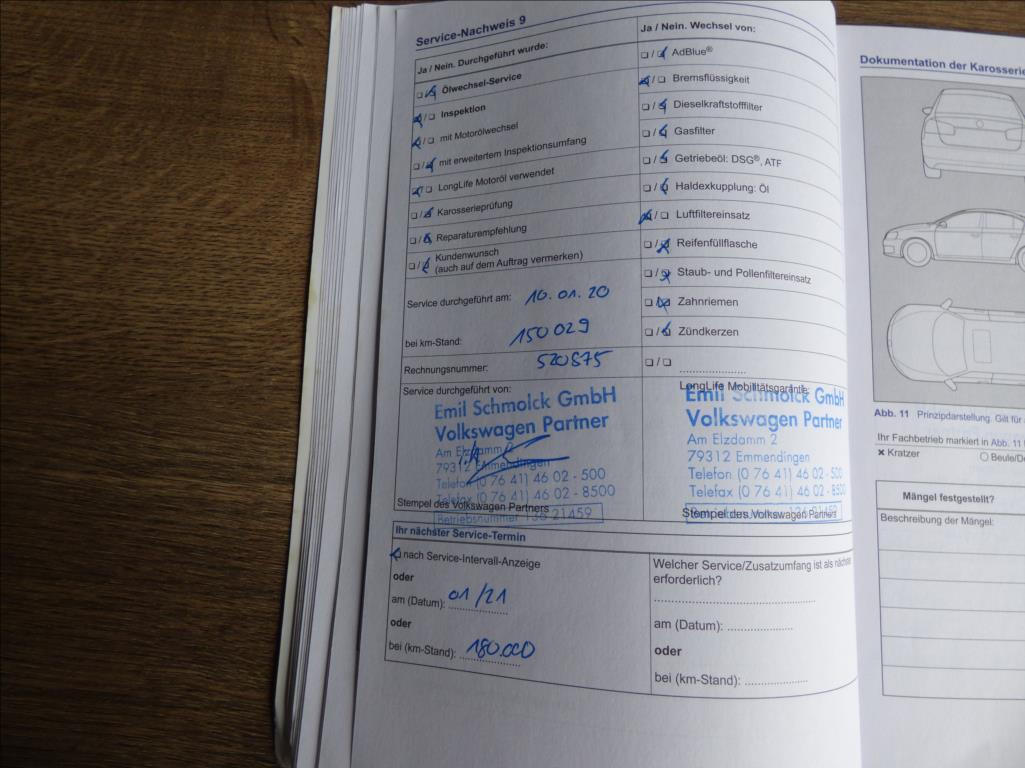 Service-Nachweis 9
Ja / Nein. Durchgeführt wurde:
Ölwechsel-Service
Inspektion
mit Motorölwechsel
mit erweitertem Inspektionsumfang
LongLife Motoröl verwendet
Karosserieprüfung
Reparaturempfehlung
Kundenwunsch
(auch auf dem Auftrag vermerken)
Service durchgeführt am: 10.01.20
bei km-Stand: 150029
Rechnungsnummer: 520875
Service durchgeführt von:
Emil Schmolck GmbH
Volkswagen Partner
Am Elzdamm 2
79312 Emmendingen
Telefon (0 76 41) 46 02 - 500
Telefax (0 76 41) 46 02 - 8500
Stempel des Volkswagen Partners
Betriebsnummer 136 21459
Ja / Nein. Wechsel von:
AdBlue®
Bremsflüssigkeit
Dieselkraftstofffilter
Gasfilter
Getriebeöl: DSG®, ATF
Haldexkupplung: Öl
Luftfiltereinsatz
Reifenfüllflasche
Staub- und Pollenfiltereinsatz
Zahnriemen
Zündkerzen
LongLife Mobilitätsgarantie:
Emil Schmolck GmbH
Volkswagen Partner
Am Elzdamm 2
79312 Emmendingen
Telefon (0 76 41) 46 02 - 500
Telefax (0 76 41) 46 02 - 8500
Stempel des Volkswagen Partners
Ihr nächster Service-Termin
nach Service-Intervall-Anzeige
oder
am (Datum): 01/21
oder
bei (km-Stand): 180.000
Welcher Service/Zusatzumfang ist als nächstes
erforderlich?
am (Datum):
oder
bei (km-Stand):
Dokumentation der Karosserie
Abb. 11 Prinzipdarstellung. Gilt für
Ihr Fachbetrieb markiert in Abb. 11
Kratzer
Beule/De
Mängel festgestellt?
Beschreibung der Mängel: